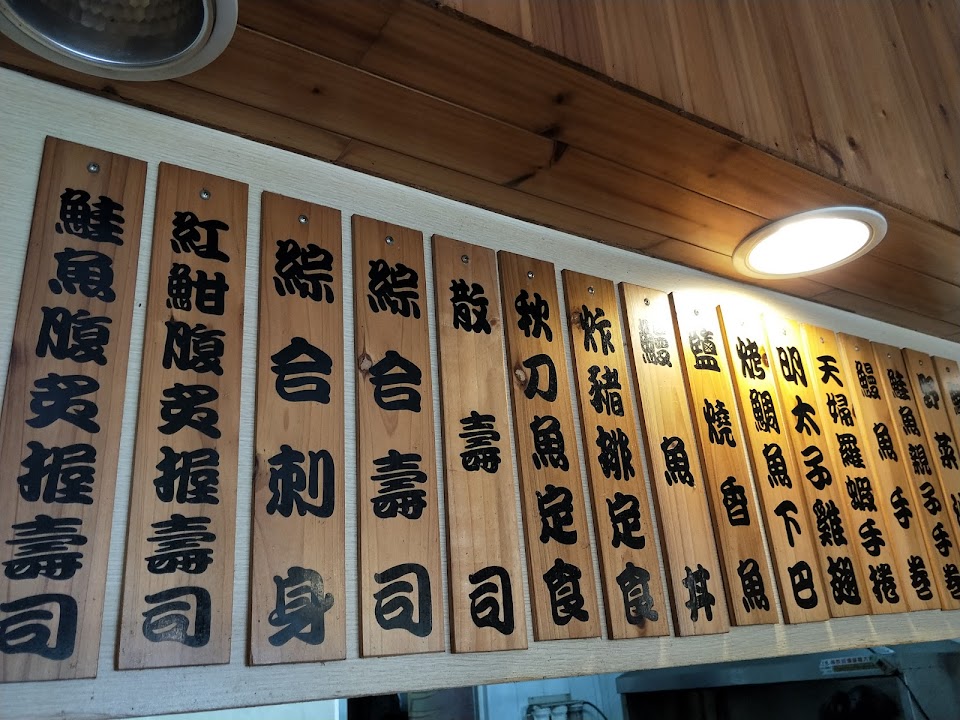 鮭魚腹炙握壽司
紅魽腹炙握壽司
綜合刺身
綜合壽司
散壽司
秋刀魚定食
炸豬排定食
鰻魚丼
鹽燒香魚
烤鯛魚下巴
明太子雞翅
天婦羅蝦手捲
鰻魚手卷
鮭魚親子手卷